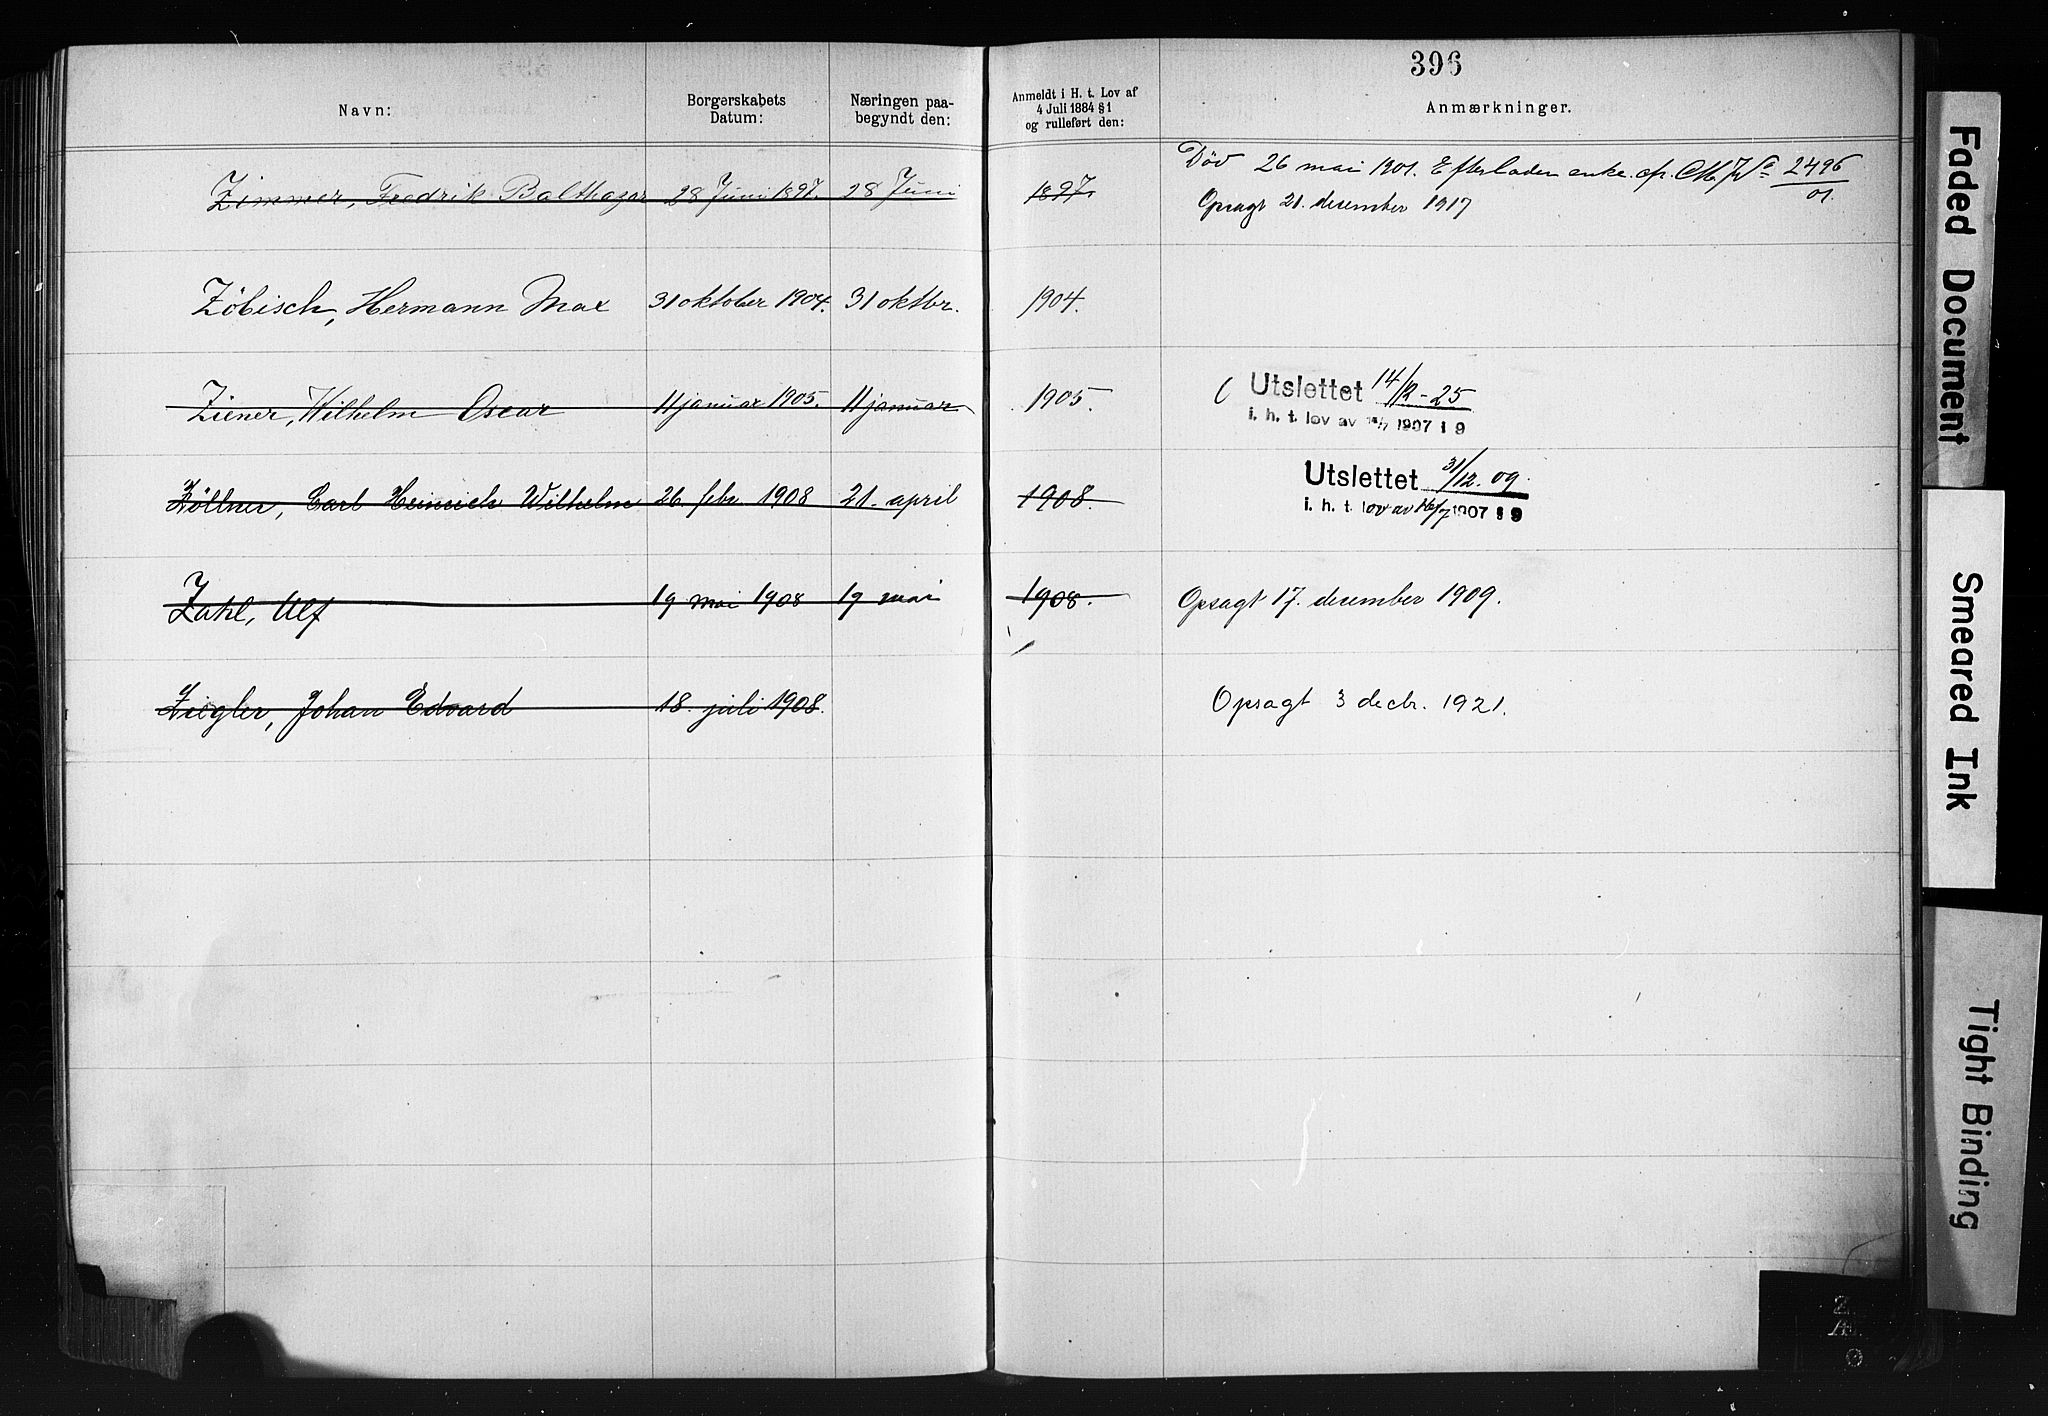 396
Navn: Borgerskabets Datum: Næringen paa-begyndt den: Anmeldt i H. t. Lov af 4 Juli 1884 § 1 og rulleført den: Anmærkninger.
Zimmer, Fredrik Balthazar 28 Juni 1897. 28 Juni 1897. Død 26 mai 1901. Efterladen enke. 2496/01.
Opsagt 21. desember 1917
Zöbisch, Hermann Max 31 oktober 1904. 31 oktbr. 1904.
Ziener, Wilhelm Oscar 11 januar 1905. 11 januar 1905. Utslettet 14/12-25
i. h. t. lov av 1907 § 9
Zöllner, Carl Heinrich Wilhelm 26. febr. 1908 21. april 1908. Utslettet 31/12.09.
i. h. t. lov av 16/7 1907 § 9
Zahl, Ulf 19 mai 1908 19 mai 1908. Opsagt 17. desember 1909.
Ziegler, Johan Edvard 18. juli 1908. Opsagt 3 decbr. 1921.
Faded Document
Smeared Ink
Tight Binding